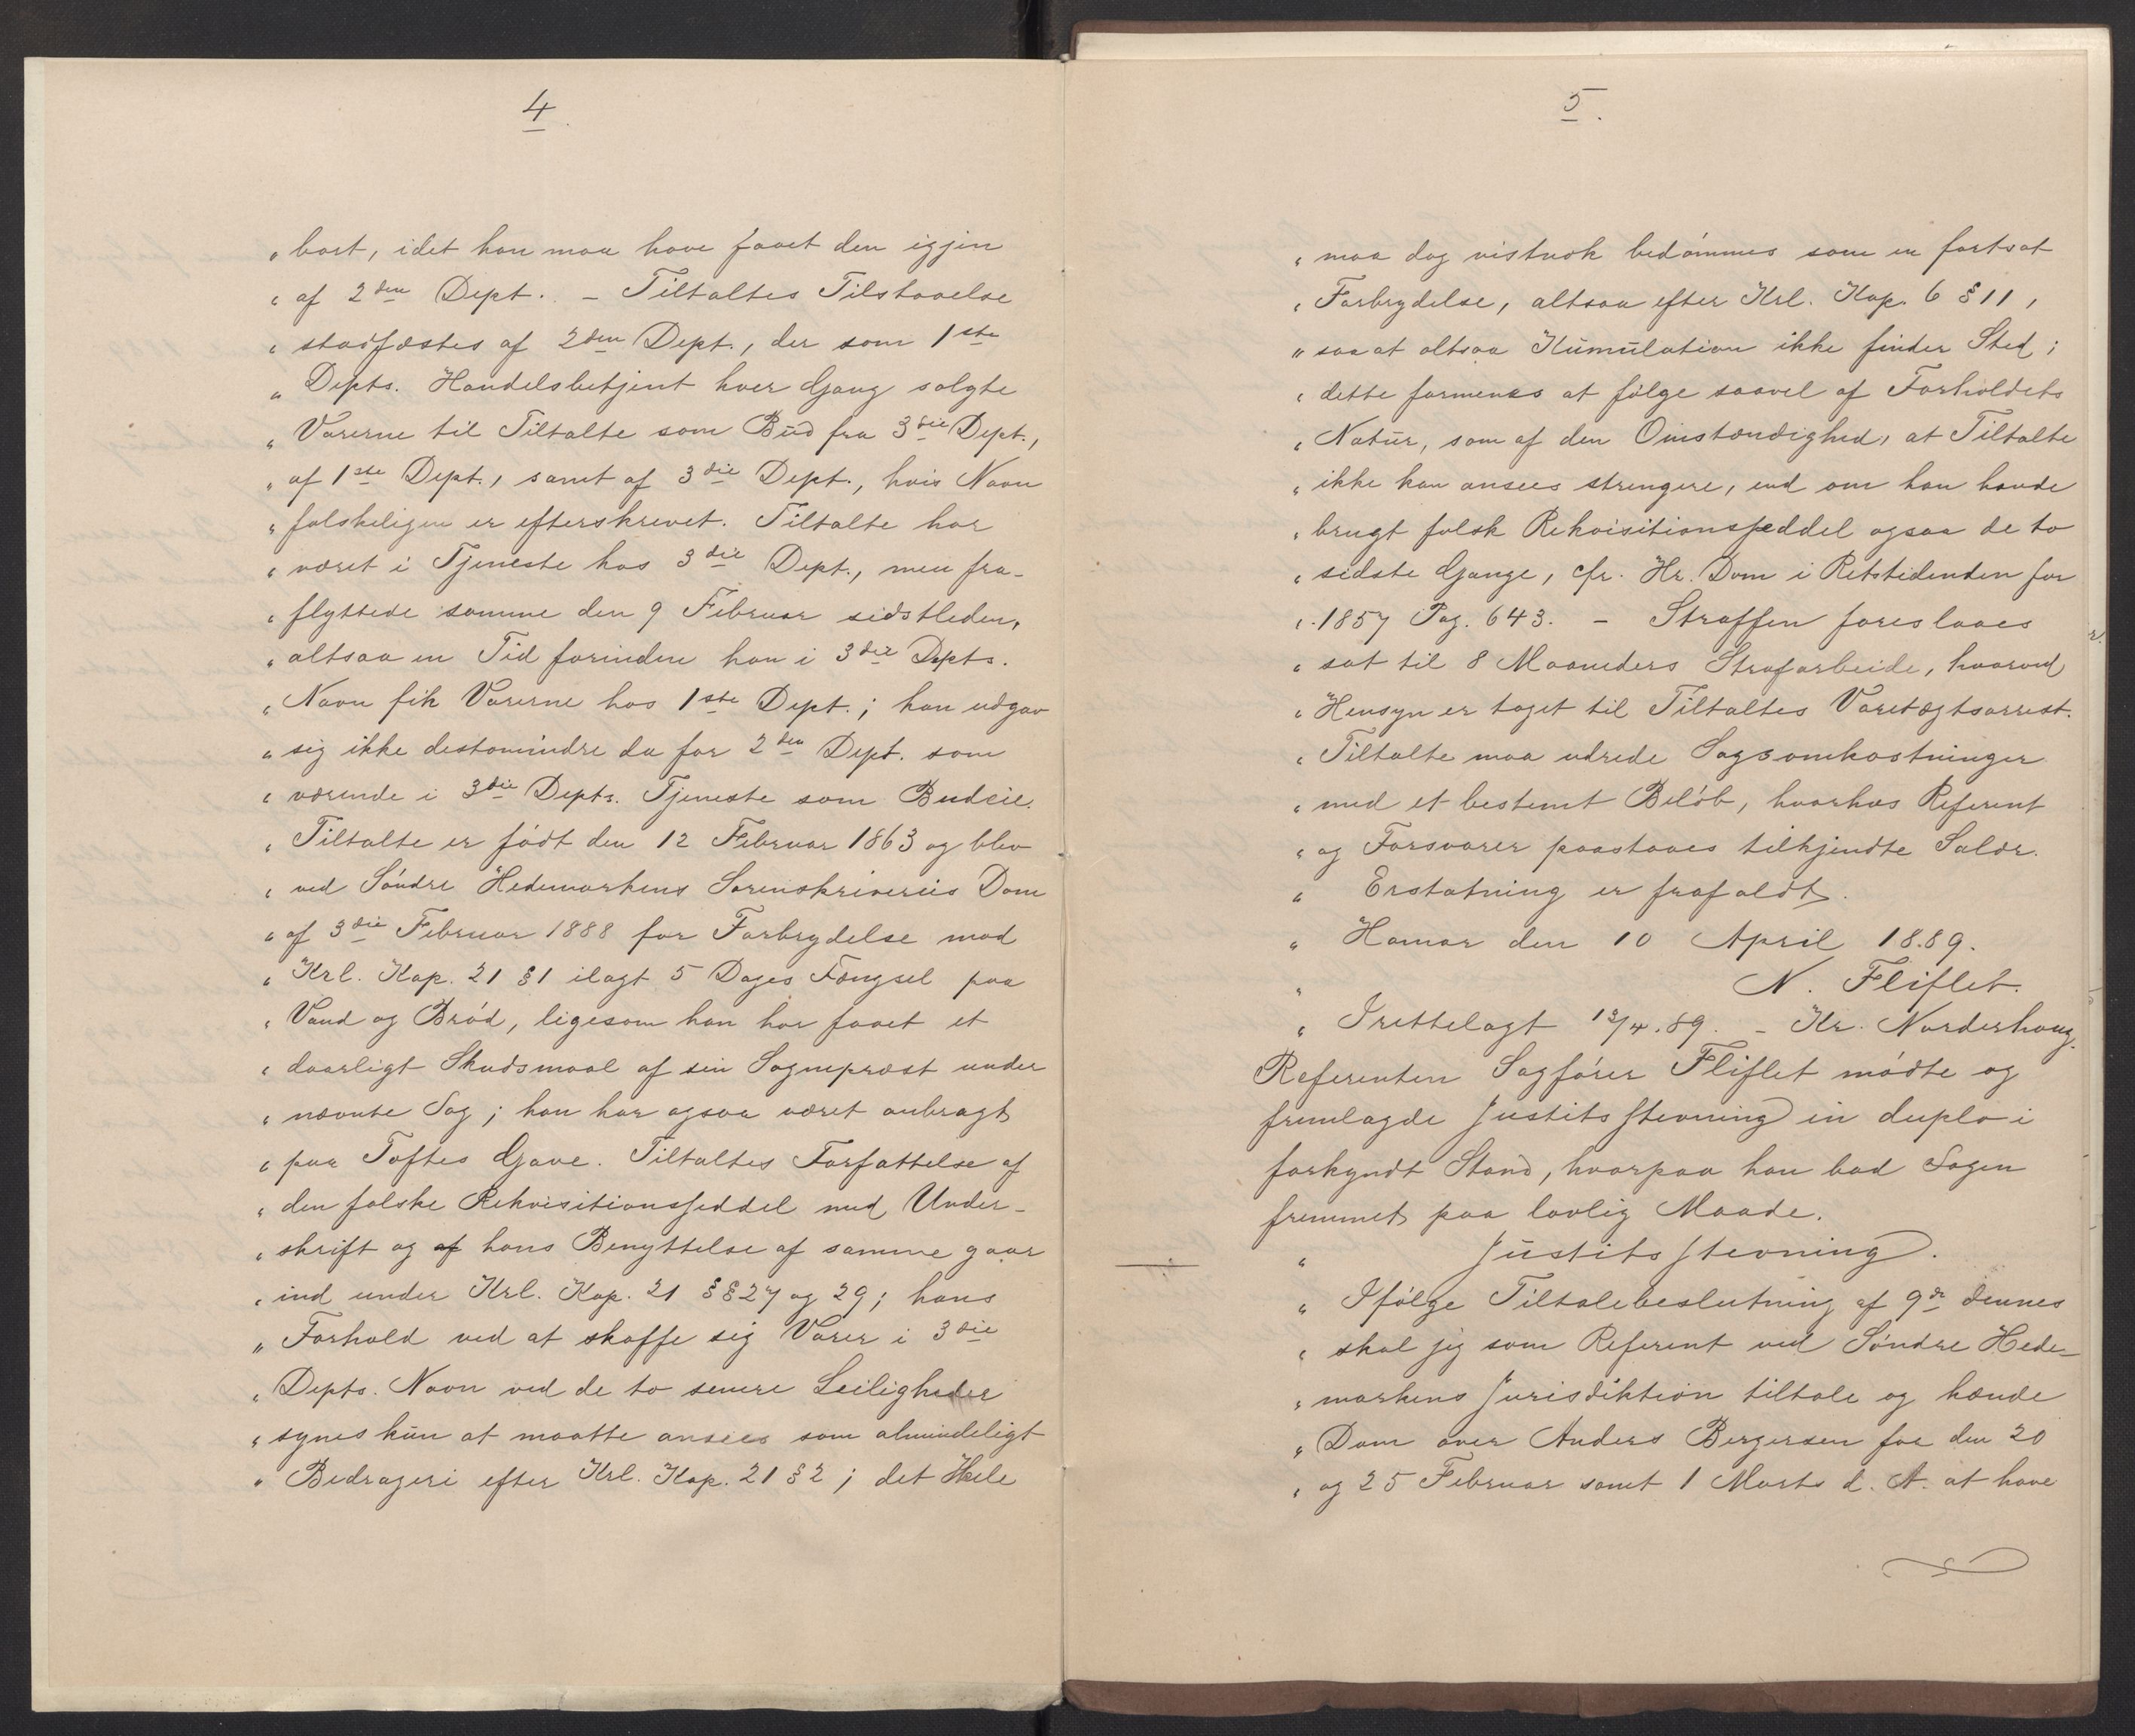 4
„ bort, idet han maa have faaet den igjen
„ af 2den Dept. – Tiltaltes Tilstaaelse
„ stadfæstes af 2den Dept., der som 1ste
„ Depts. Handelsbetjent hver Gang solgte
„ Varerne til Tiltalte som Bud fra 3die Dept.,
„ af 1ste Dept., samt af 3die Dept., hvis Navn
„ falskeligen er efterskrevet. Tiltalte har
„ været i Tjeneste hos 3die Dept., men fra-
„ flyttede samme den 9 Februar sidstleden,
„ altsaa en Tid forinden han i 3die Depts.
„ Navn fik Varerne hos 1ste Dept.; han udgav
„ sig ikke destomindre da for 2den Dept. som
„ værende i 3die Depts. Tjeneste som Budeie.
„ Tiltalte er født den 12 Februar 1863 og blev
„ ved Søndre Hedemarkens Sorenskriveriis Dom
„ af 3die Februar 1888 for Forbrydelse mod
„ Krl. Kap. 21 § 1 ilagt 5 Dages Fængsel paa
„ Vand og Brød, ligesom han har faaet et
„ daarligt Skudsmaal af sin Sognepræst under
„ nævnte Sag; han har ogsaa været anbragt
„ paa Toftes Gave. Tiltaltes Forfattelse af
„ den falske Rekvisitionsseddel med Under-
„ skrift og af hans Benyttelse af samme gaar
„ ind under Krl. Kap. 21 §§ 27 og 29; hans
„ Forhold ved at skaffe sig Varer i 3die
„ Depts. Navn ved de to senere Leiligheder
„ synes kun at maatte ansees som almindeligt
„ Bedrageri efter Krl. Kap. 21 § 2; det Hele
5.
„ maa dog vistnok bedømmes som en fortsat
„ Forbrydelse, altsaa efter Krl. Kap. 6 § 11,
„ saa at altsaa Kumulation ikke finder Sted;
„ dette formenes at følge saavel af Forholdets
„ Natur, som af den Omstændighed, at Tiltalte
„ ikke kan ansees strengere, end om han havde
„ brugt falsk Rekvisitionsseddel ogsaa de to
„ sidste Gange, cfr. Hr. Dom i Retstidenden for
„ 1857 Pag. 643. – Straffen foreslaaes
„ sat til 8 Maaneders Strafarbeide, hvorved
„ Hensyn er taget til Tiltaltes Varetægtsarrest.
„ Tiltalte maa udrede Sagsomkostninger
„ med et bestemt Beløb, hvorhos Referent
„ og Forsvarer paastaaes tilkjendte Salær.
„ Erstatning er frafaldt.
„ Hamar den 10 April 1889.
„ N. Fliflet.
„ Irettelagt 12/4.89. – Kr. Norderhoug.
Referenten Sagfører Fliflet mødte og
fremlagde Justitsstevning in duplo i
forkyndt Stand, hvorpaa han bad Sagen
fremmet paa lovlig Maade.
„ Justitsstevning.
„ Ifølge Tiltalebeslutning af 9de dennes
„ skal jeg som Referent ved Søndre Hede-
„ markens Jurisdiktion tiltale og hænde
„ Dom over Anders Bergersen for den 20
„ og 25 Februar samt 1 Marts d. A. at have